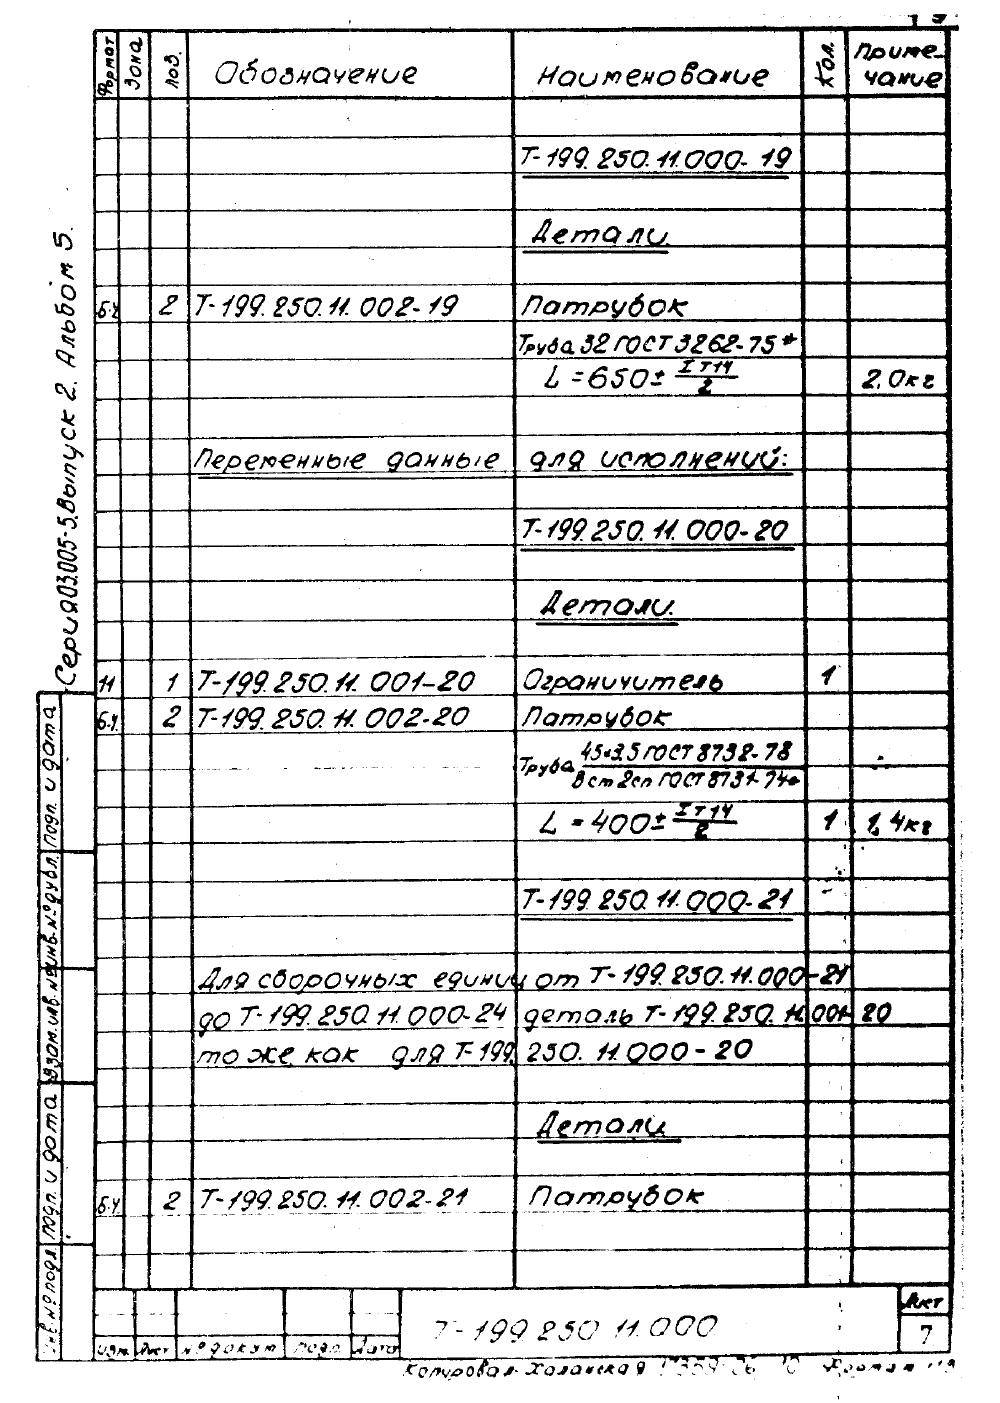 Формат Зона Поз. Обозначение Наименование Кол. Приме-
чание
Т-199.250.11.000-19
Детали
Б.Ч 2 Т-199.250.11.002-19 Патрубок
Труба 32 ГОСТ 3262-75*
L=650± IT14/2 2,0кг
Переменные данные для исполнений:
Т-199.250.11.000-20
Детали
11 1 Т-199.250.11.001-20 Ограничитель 1
Б.Ч. 2 Т-199.250.11.002-20 Патрубок
Труба 45×3.5 ГОСТ 8732-78
В ст 2сп ГОСТ 8731-74*
L=400± IT14/2 1 1,4кг
Т-199.250.11.000-21
Для сборочных единиц от Т-199.250.11.000-21
до Т-199.250.11.000-24 деталь Т-199.250.11.001-20
то же как для Т-199.250.11.000-20
Детали
Б.Ч 2 Т-199.250.11.002-21 Патрубок
Серия 03.005-5. Выпуск 2. Альбом 5.
Инв.№подл. Подп. и дата Взам.инв.№ Инв.№дубл. Подп. и дата
Т-199.250.11.000
Лист
7
Изм. Лист № докум Подп. Дата
Копировал- Формат